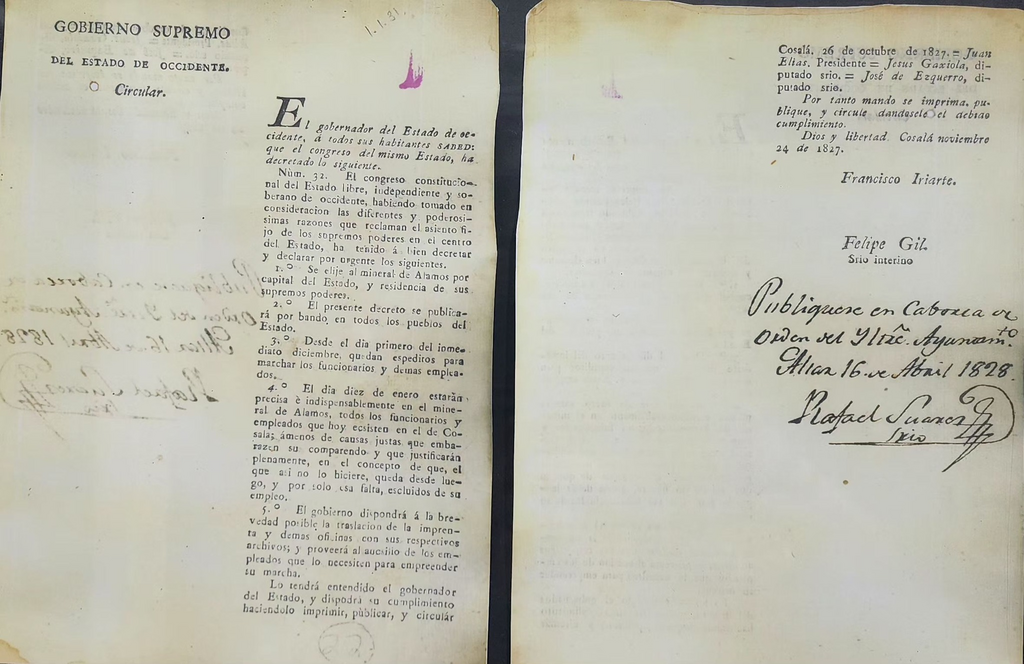 GOBIERNO SUPREMO
DEL ESTADO DE OCCIDENTE.
Circular.
1.1.31.
El gobernador del Estado de oc-
cidente, á todos sus habitantes SABED:
que el congreso del mismo Estado, ha
decretado lo siguiente.
Núm. 32. El congreso constitucio-
nal del Estado libre, independiente y so-
berano de occidente, habiendo tomado en
consideracion las diferentes y poderosi-
simas razones que reclaman el asiento fi-
jo de los supremos poderes en el centro
del Estado, ha tenido á bien decretar
y declarar por urgente los siguientes.
1.º Se elije al mineral de Alamos por
capital del Estado, y residencia de sus
supremos poderes.
2.º El presente decreto se publica-
rá por bando, en todos los pueblos del
Estado.
3.º Desde el dia primero del inme-
diato diciembre, quedan espeditos para
marchar los funcionarios y demas emplea-
dos.
4.º El dia diez de enero estarán
precisa è indispensablemente en el mine-
ral de Alamos, todos los funcionarios y
empleados que hoy ecsisten en el de Co-
sala; ámenos de causas justas que emba-
razen su comparendo y que justificarán
plenamente, en el concepto de que, el
que asi no lo hiciere, queda desde lue-
go, y por solo esa falta, escluidos de su
empleo.
5.º El gobierno dispondrá á la bre-
vedad posible la traslacion de la impren-
ta y demas oficinas con sus respectivos
archivos; y proveerá al aucsilio de los em-
pleados que lo necesiten para emprender
su marcha.
Lo tendrá entendido el gobernador
del Estado, y dispodrá su cumplimiento
haciendolo imprimir, pùblicar, y circular
Cosalá. 26 de octubre de 1827. = Juan
Elias. Presidente = Jesus Gaxiola, di-
putado srio. = José de Ezquerro, di-
putado srio.
Por tanto mando se imprima, pu-
blique, y circule dandosele el debido
cumplimiento.
Dios y libertad. Cosalá noviembre
24 de 1827.
Francisco Iriarte.
Felipe Gil.
Srio interino
Publiquese en Caborca de
Orden del Yltre. Ayuntam.to
Altar 16 de Abril 1828.
Rafael Suarez
srio